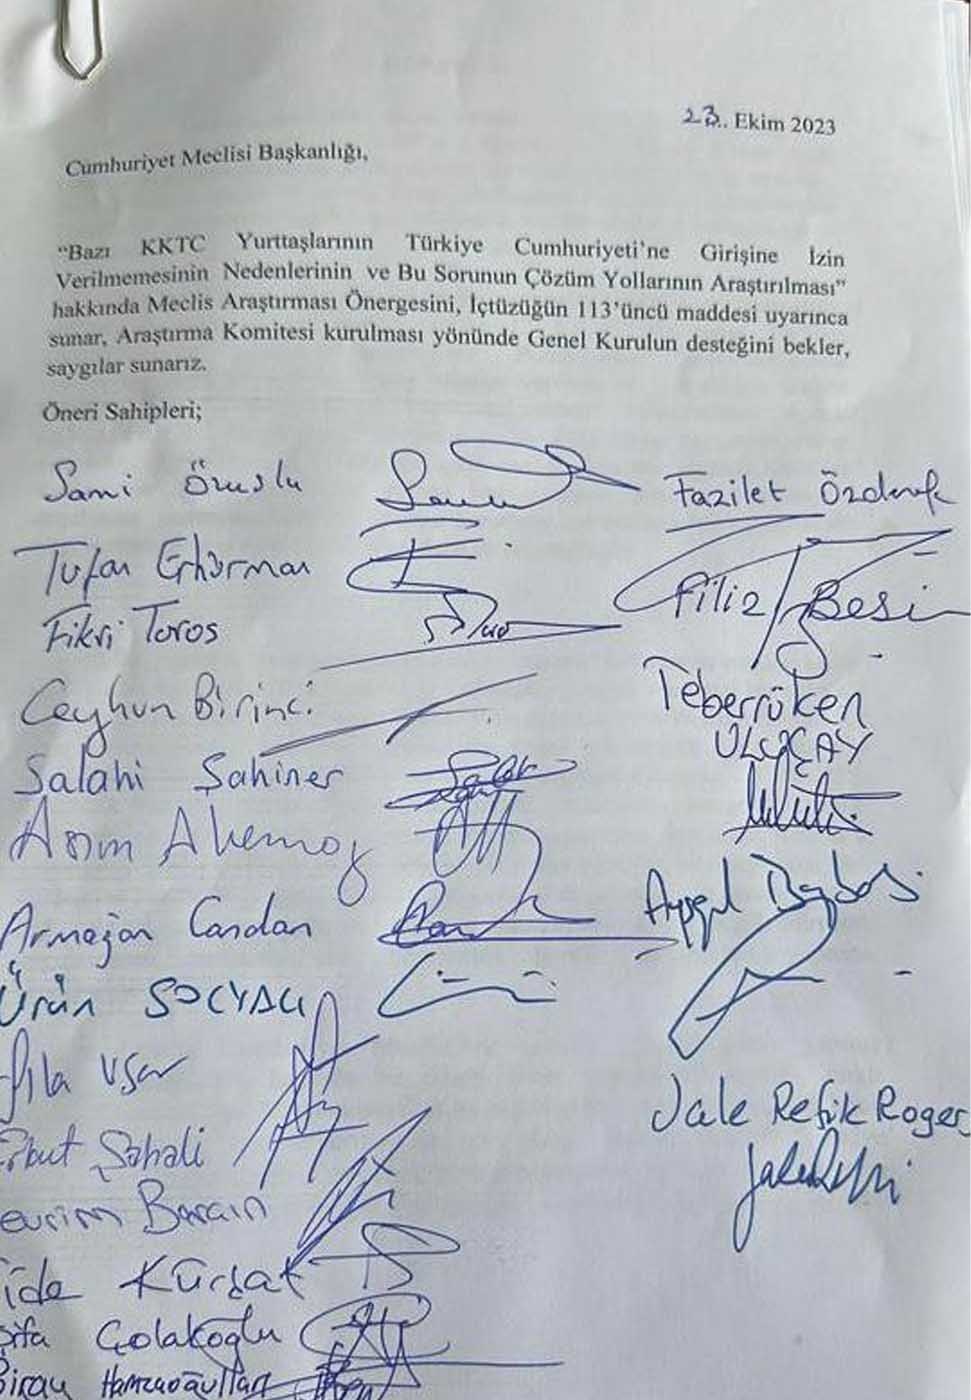 23.. Ekim 2023
Cumhuriyet Meclisi Başkanlığı,
“Bazı KKTC Yurttaşlarının Türkiye Cumhuriyeti’ne Girişine İzin
Verilmemesinin Nedenlerinin ve Bu Sorunun Çözüm Yollarının Araştırılması”
hakkında Meclis Araştırması Önergesini, İçtüzüğün 113’üncü maddesi uyarınca
sunar, Araştırma Komitesi kurulması yönünde Genel Kurulun desteğini bekler,
saygılar sunarız.
Öneri Sahipleri;
Sami Özuslu
Tufan Erhürman
Fikri Toros
Ceyhun Birinci
Salahi Şahiner
Asım Akansoy
Armağan Candan
Ürün SOLYALI
Şıla Uşar
Şahali
evrim Barçın
ide Kürşat
ifa Çolakoğlu
Biray Hamzaoğulları
Fazilet Özdenefe
Filiz Besim
Teberrüken
ULUÇAY
Ayşegül Baybars
Jale Refik Rogers